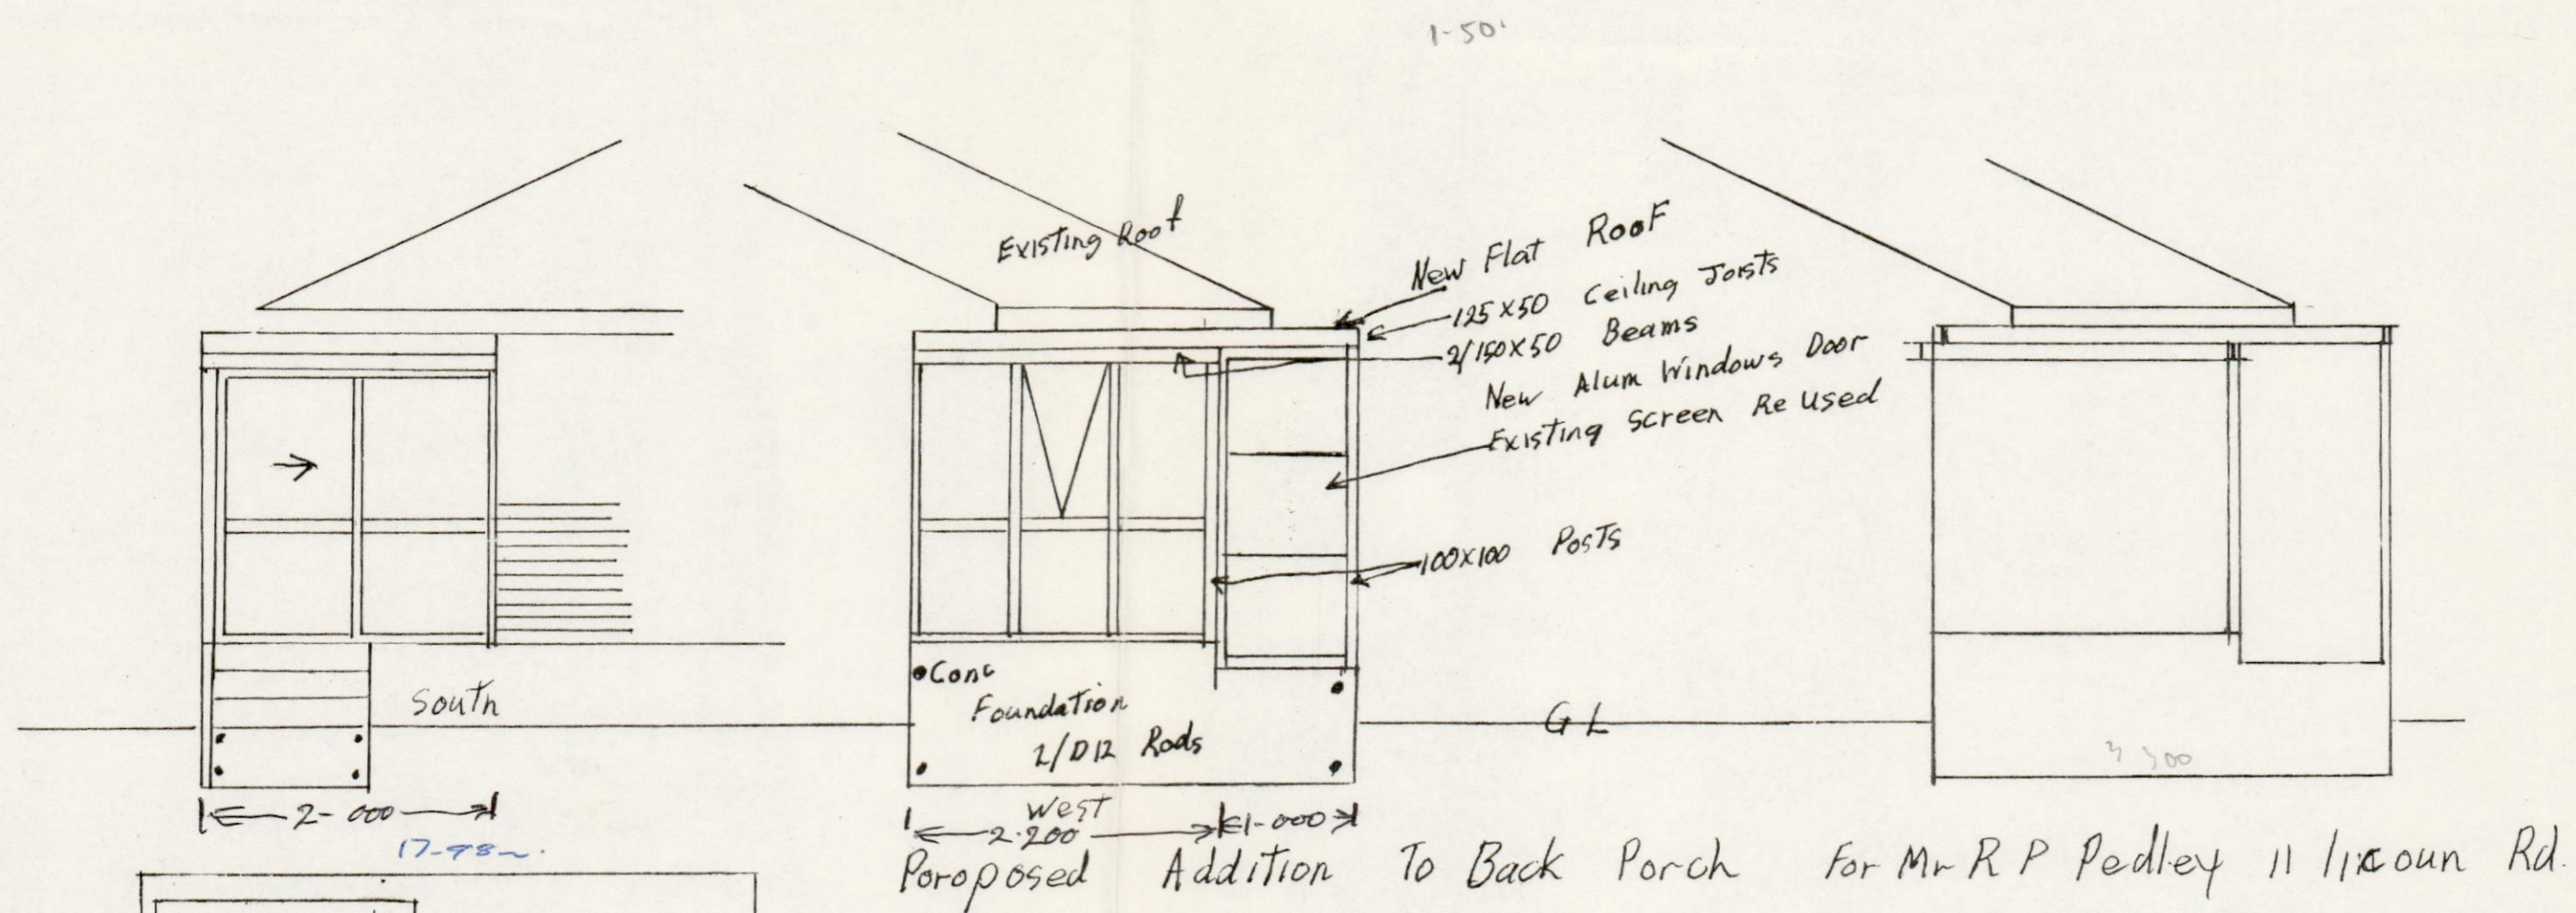 1-50
Existing Roof
New Flat Roof
125x50 Ceiling Joists
2/150x50 Beams
New Alum Windows Door
Existing Screen Re Used
100x100 Posts
South
Conc
Foundation
2/D12 Rods
G L
3 300
2-000
West
2.200
1-000
Poroposed Addition To Back Porch For Mr R P Pedley 11 lincoun Rd.